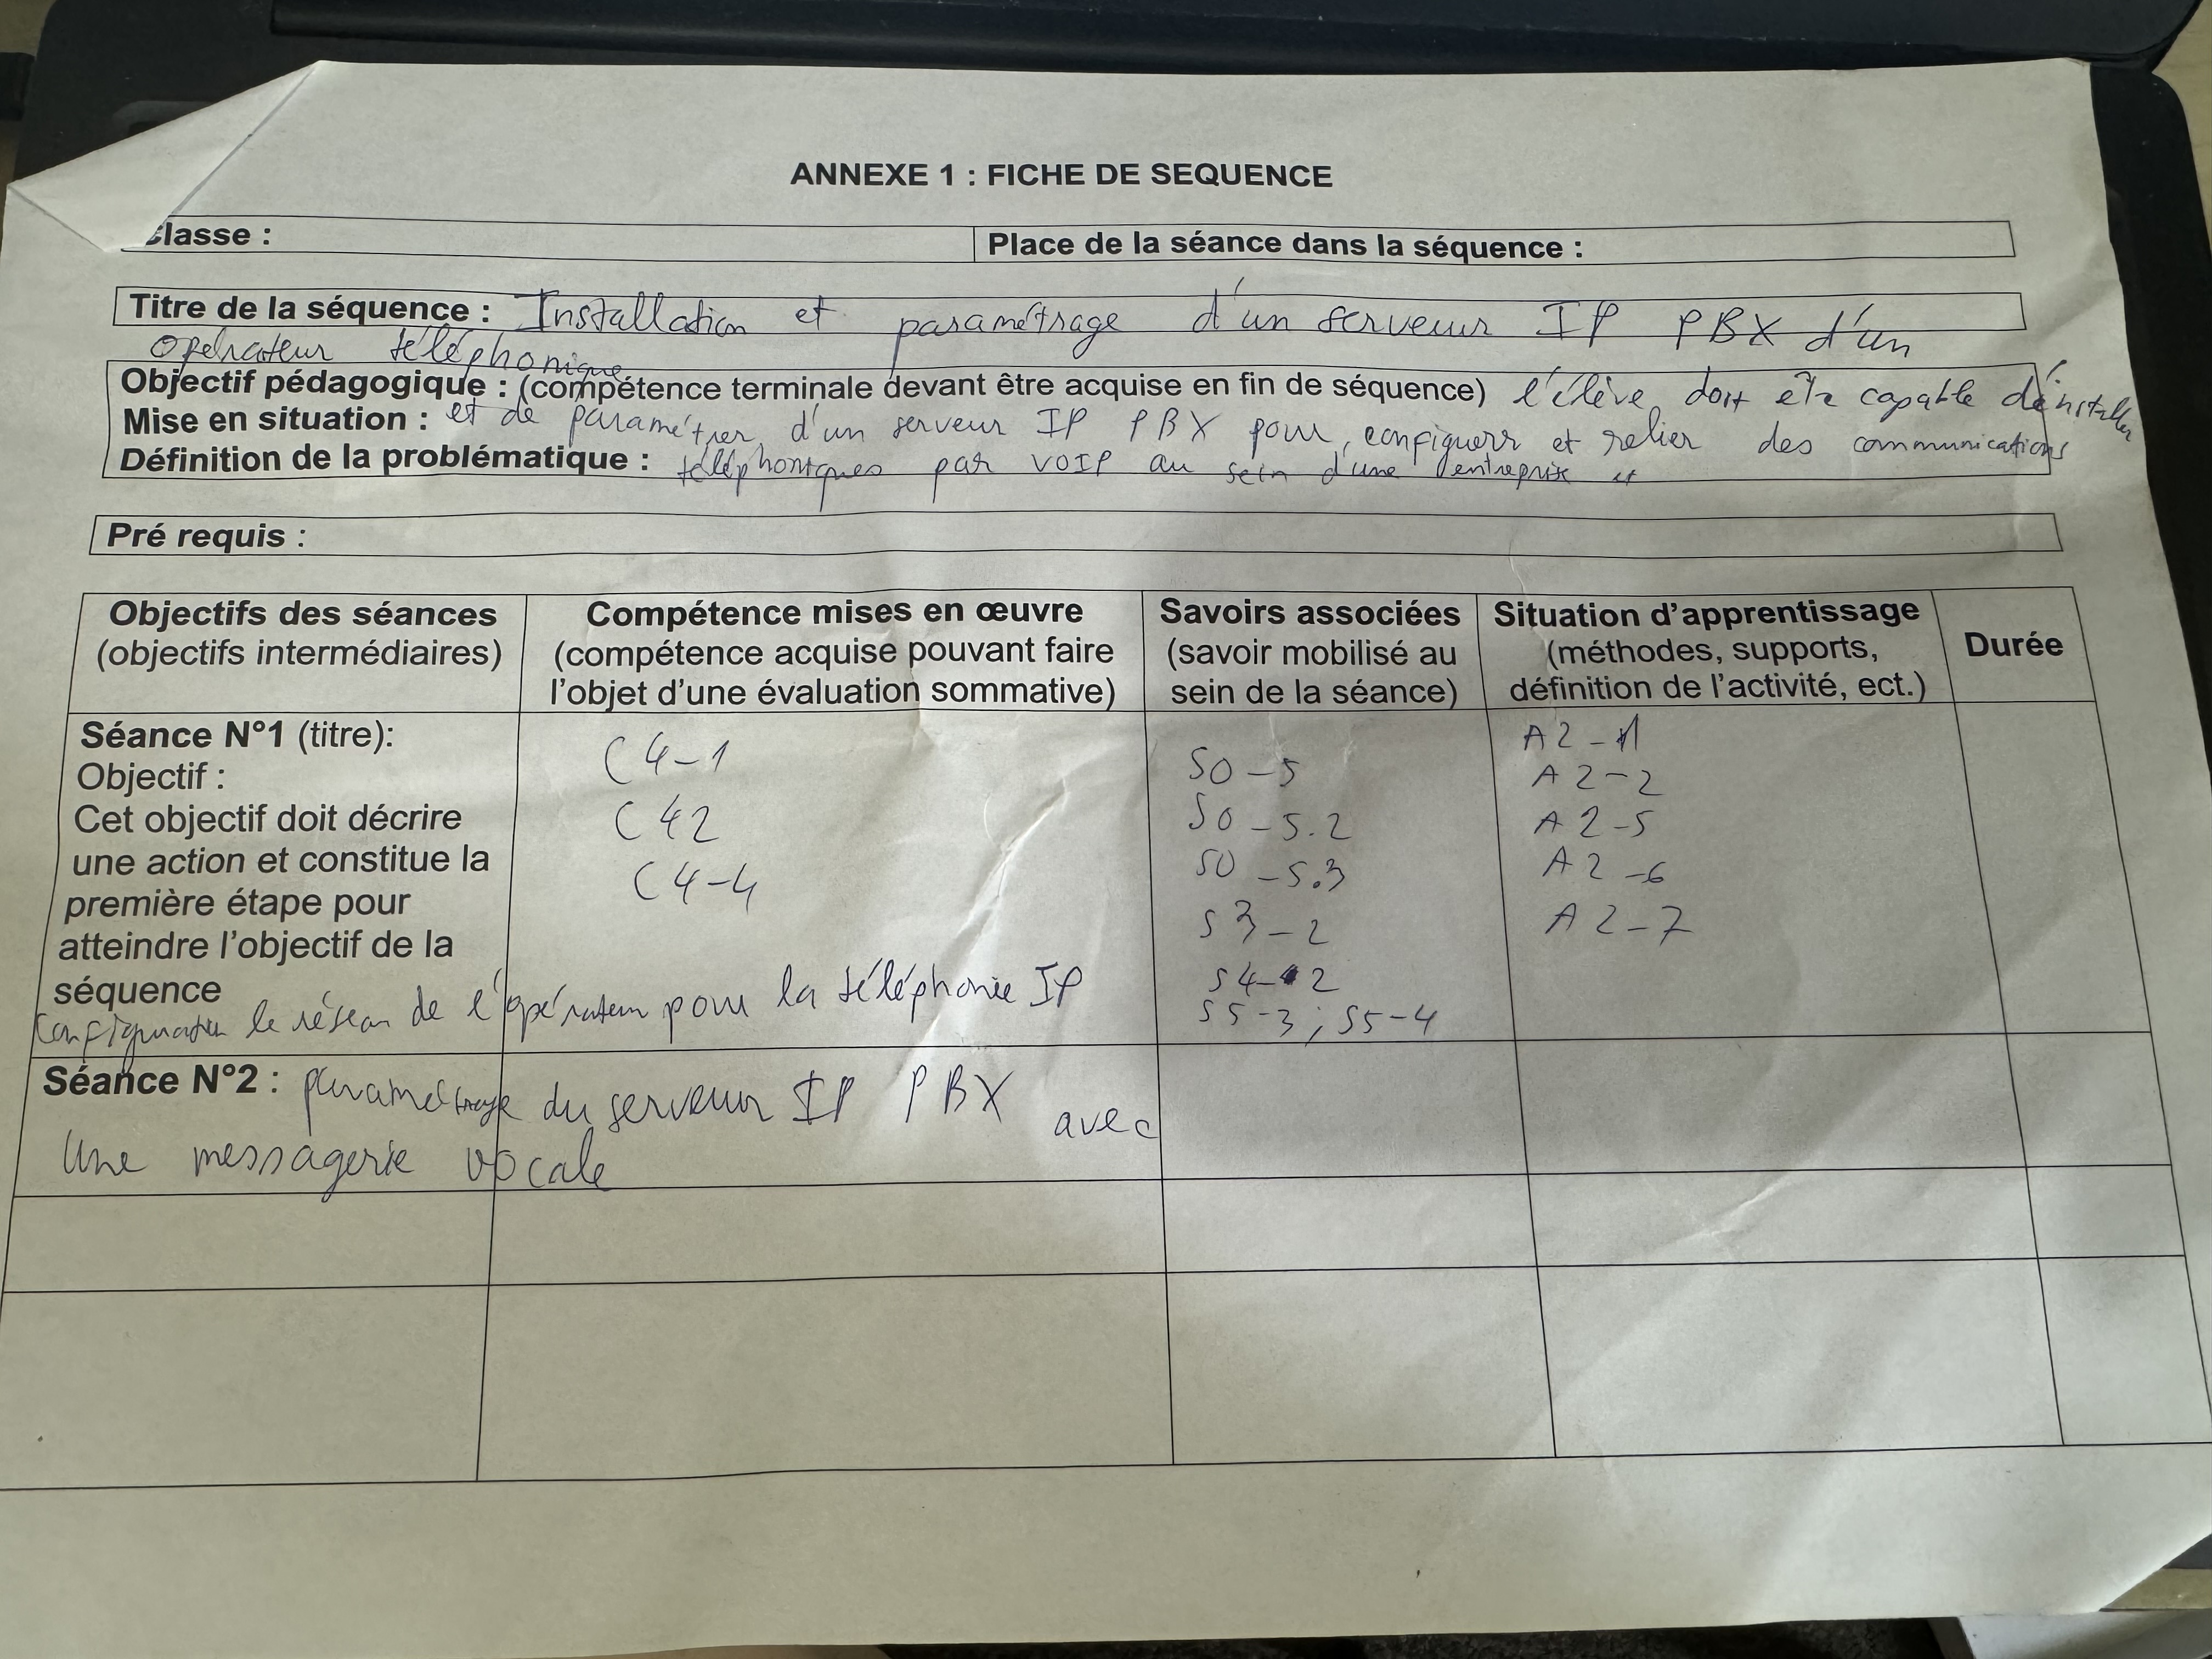 ANNEXE 1 : FICHE DE SEQUENCE
Classe :
Place de la séance dans la séquence :
Titre de la séquence : Installation et paramétrage d'un serveur IP PBX d'un
opérateur téléphonique
Objectif pédagogique : (compétence terminale devant être acquise en fin de séquence) l'élève doit être capable d'installer
Mise en situation : et de paramétrer, d'un serveur IP PBX pour, configurer et relier des communications
Définition de la problématique : téléphoniques par VOIP au sein d'une entreprise et
Pré requis :
Objectifs des séances
(objectifs intermédiaires)
Compétence mises en œuvre
(compétence acquise pouvant faire
l'objet d'une évaluation sommative)
Savoirs associées
(savoir mobilisé au
sein de la séance)
Situation d'apprentissage
(méthodes, supports,
définition de l'activité, ect.)
Durée
Séance N°1 (titre):
Objectif :
Cet objectif doit décrire
une action et constitue la
première étape pour
atteindre l'objectif de la
séquence
Configuration le réseau de l'opérateur pour la téléphonie IP
C4-1
C42
C4-4
S0-5
S0-5.2
S0-5.3
S3-2
S4-2
S5-3 ; S5-4
A2-1
A2-2
A2-5
A2-6
A2-7
Séance N°2 : paramétrage du serveur IP PBX avec
Une messagerie vocale